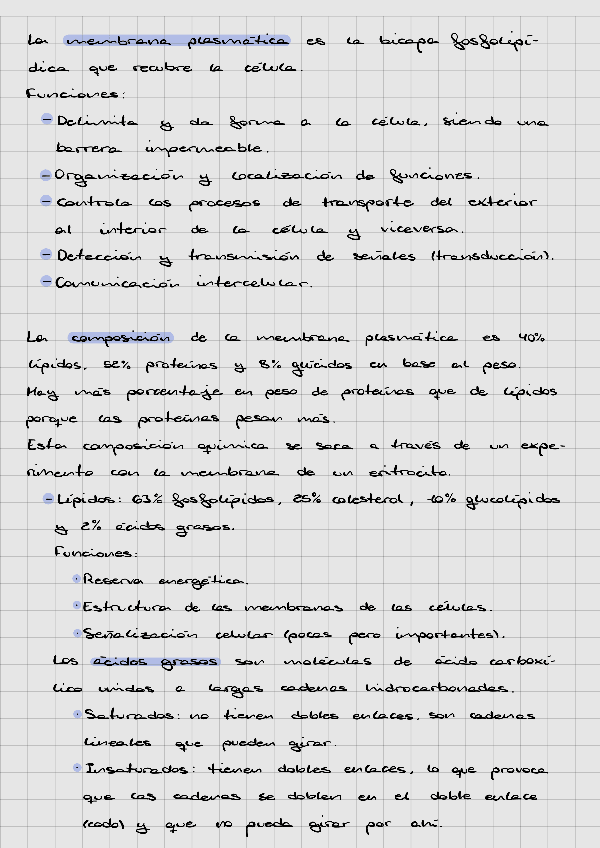 La membrana plasmática es la bicapa fosfolipí-
dica que recubre la célula.
Funciones:
- Delimita y da forma a la célula, siendo una
barrera impermeable.
- Organización y localización de funciones.
- Controla los procesos de transporte del exterior
al interior de la célula y viceversa.
- Detección y transmisión de señales (transducción).
- Comunicación intercelular.
La composición de la membrana plasmática es 40%
lípidos, 52% proteínas y 8% glúcidos en base al peso.
Hay más porcentaje en peso de proteínas que de lípidos
porque las proteínas pesan más.
Esta composición química se saca a través de un expe-
rimento con la membrana de un eritrocito.
- Lípidos: 63% fosfolípidos, 25% colesterol, 10% glucolípidos
y 2% ácidos grasos.
Funciones:
· Reserva energética.
· Estructura de las membranas de las células.
· Señalización celular (pocas pero importantes).
Los ácidos grasos son moléculas de ácido carboxí-
lico unidos a largas cadenas hidrocarbonadas.
· Saturados: no tienen dobles enlaces, son cadenas
lineales que pueden girar.
· Insaturados: tienen dobles enlaces, lo que provoca
que las cadenas se doblen en el doble enlace
(codo) y que no pueda girar por ahí.